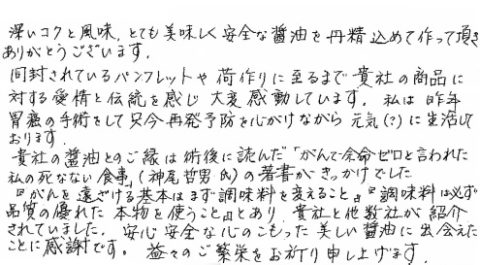 深いコクと風味、とても美味しく安全な醤油を丹精込めて作って頂き
ありがとうございます。
同封されているパンフレットや荷作りに至るまで貴社の商品に
対する愛情と伝統を感じ大変感動しています。私は昨年
胃癌の手術をして只今再発予防を心がけながら元気(?)に生活して
おります。
貴社の醤油とのご縁は術後に読んだ「がんで余命ゼロと言われた
私の死なない食事」(神尾哲男氏)の著書がきっかけでした
『がんを遠ざける基本はまず調味料を変えること』『調味料は必ず
品質の優れた本物を使うこと』とあり、貴社と他数社が紹介
されていました。安心安全な心のこもった美しい醤油に出会えた
ことに感謝です。益々のご繁栄をお祈り申し上げます。